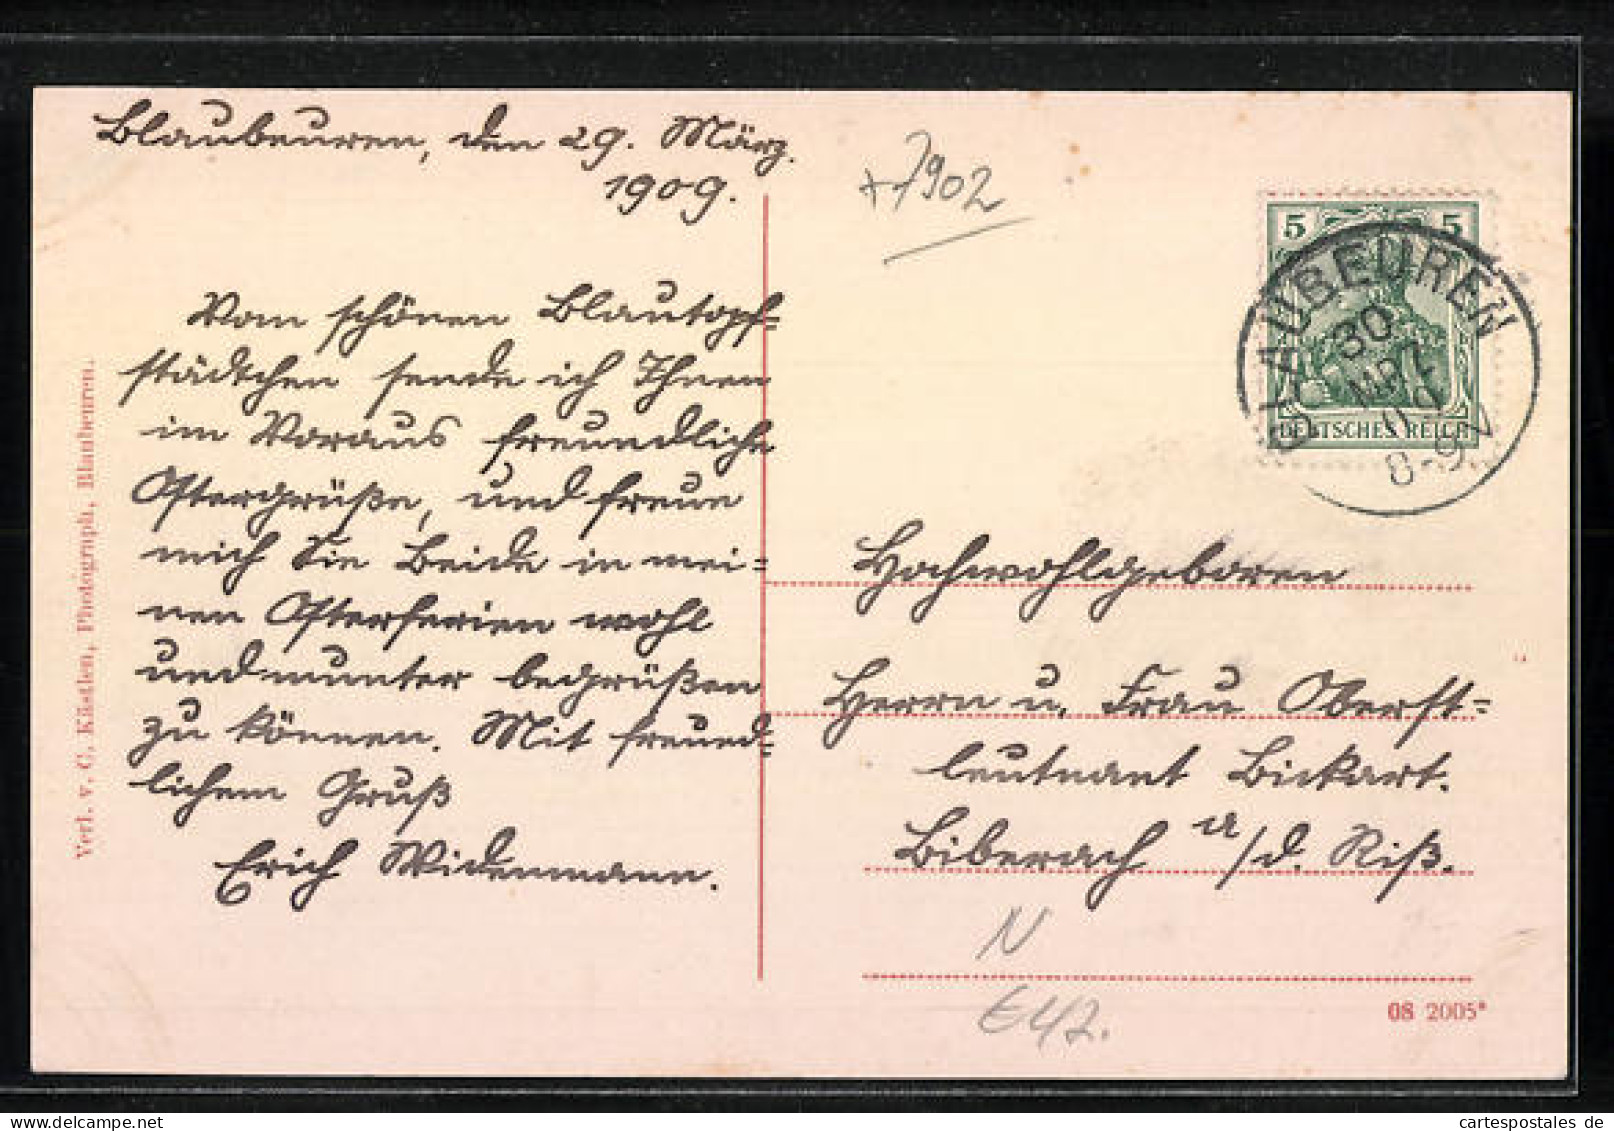 Blaubeuren, den 29. März.
1909.
Vom schönen Blautopf=
städtchen sende ich Ihnen
im Voraus freundliche
Ostergrüße, und freue
mich Sie Beide in mei=
nen Osterferien wohl
und munter begrüßen
zu können. Mit freund=
lichem Gruß
Erich Widenmann.
Verl. v. C. Kästlen, Photograph, Blaubeuren.
+7902
5 5
DEUTSCHES REICH
BLAUBEUREN
30
MRZ
09
8-9V
Hochwohlgeboren
Herrn u. Frau Oberst=
leutnant Bickart.
Biberach a/d. Riß.
N
€42.
08 2005*
cartespostales de